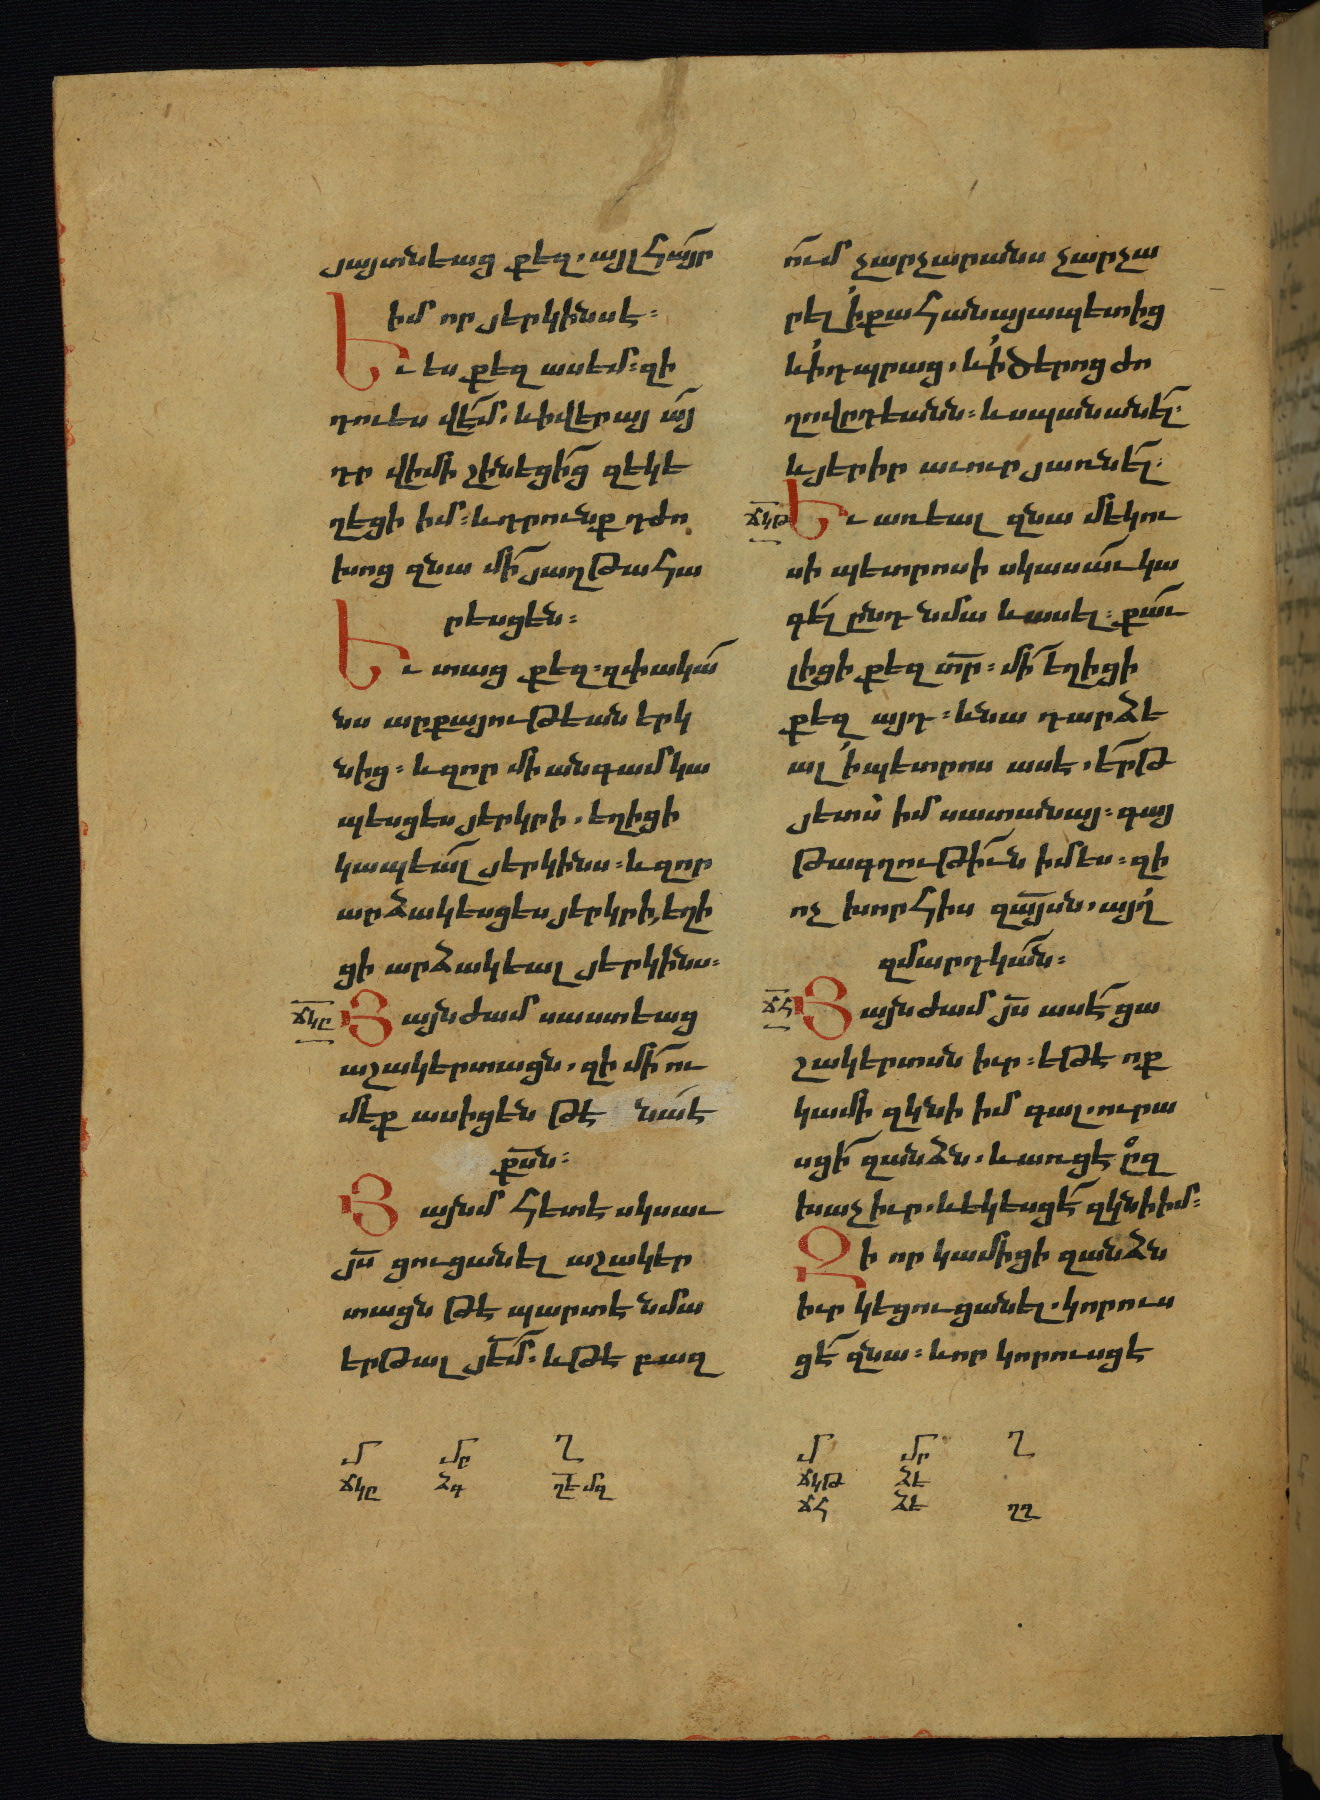 յայտնեաց քեզ. այլ հա՛յր
իմ որ յերկինսէ:
Եւ ես քեզ ասեմ: զի
դուես վէմ. և ի վերայ ա՛յ
դր վիմի շինեցի՛ց զեկե
ղեցի իմ: և դրունք դժո
խոց զնա մի՛ յաղթահա
րեսցեն:
Եւ տաց քեզ: զփակա՛
նս արքայութեան երկ
նից: և զոր միանգամ կա
պեսցես յերկրի. եղիցի
կապեա՛լ յերկինս: և զոր
արձակեսցես յերկրի, եղի
ցի արձակեալ յերկինս:
ճկը Յայնժամ սաստեաց
աշակերտացն. զի մի՛ ու
մեք ասիցեն թէ նա՛է
քսն:
Յայնմ հետէ սկսաւ
յս ցուցանել աշակեր
տացն թէ պարտէ նմա
երթալ յէմ: և թէ բազ
ո՛ւմ չարչարանս չարչա
րել ի քահանայապետից
և ի դպրաց. և ի ծերոց ժո
ղովըդեանն: և սպանանել:
և յերիր աւուր յառնել:
ճկթ Եւ առեալ զնա մեկու
սի պետրոսի սկսաւ կա
գել ընդ նմա և ասել: քա՛ւ
լիցի քեզ տր: մի՛ եղիցի
քեզ այդ: և նա դարձե
ալ ի պետրոս ասէ. ե՛րթ
յետս իմ սատանայ: գայ
թագղութի՛ւն իմ ես: զի
ոչ խորհիս զա՛յսն. այղ
զմարդկա՛ն:
ճհ Յայնժամ յս ասէ ցա
շակերտսն իւր: եթէ ոք
կամի զկնի իմ գալ. ուրա
սցի՛ զանձն. և առցէ զ
խաչ իւր. և եկեսցէ՛ զկնի իմ:
Զի որ կամիցի զանձն
իւր կեցուցանել. կորուս
ցէ՛ զնա: և որ կորուսցէ
մ մր ղ
ճկը ձգ ղէ մզ
մ մր ղ
ճկթ ձե
ճհ ձե ղղ